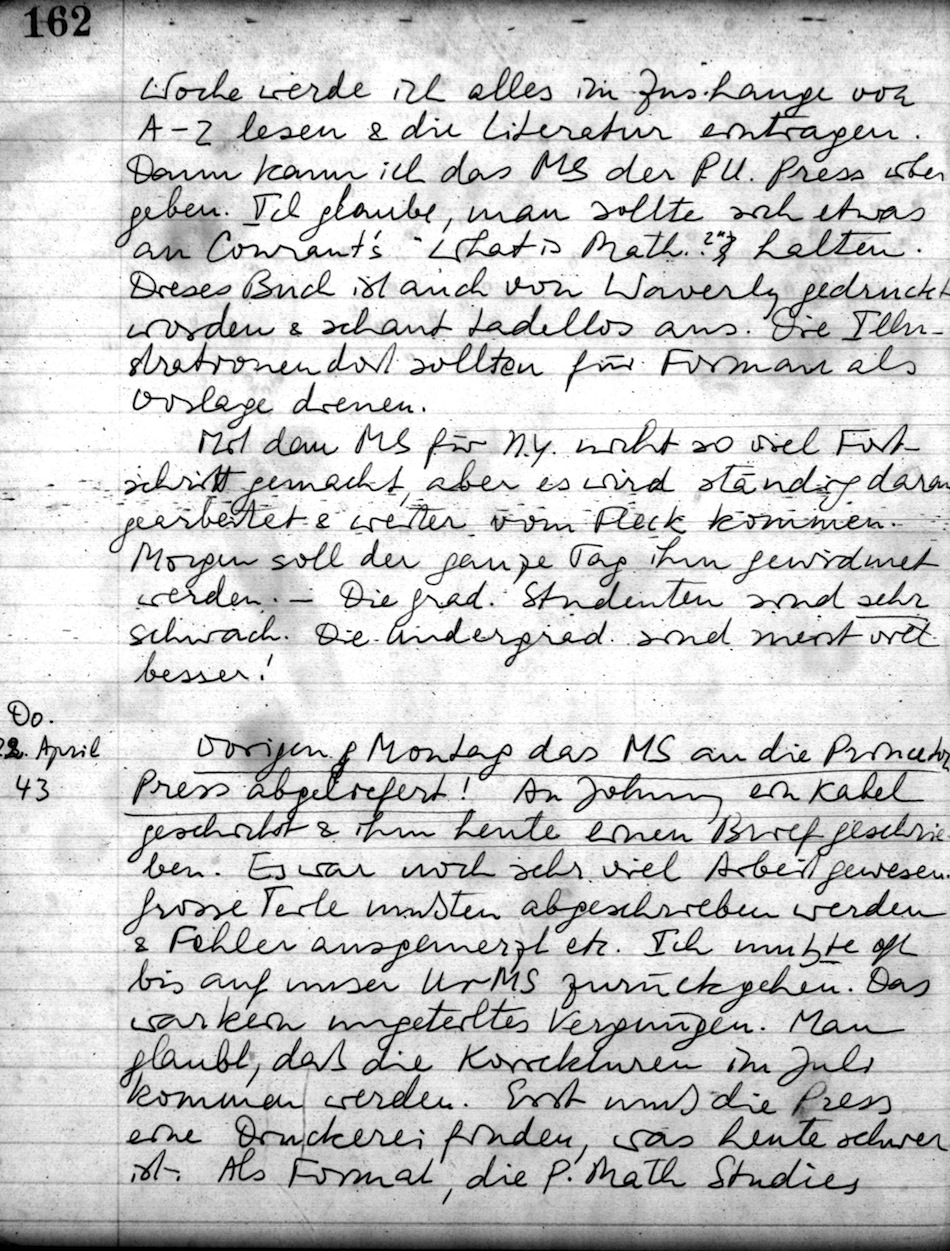 162
Woche werde ich alles im Zus.hange von
A-Z lesen & die Literatur eintragen.
Dann kann ich das MS der P.U. Press über
geben. Ich glaube, man sollte sich etwas
an Courant's "What is Math.?" halten.
Dieses Buch ist auch von Waverly gedruckt
worden & schaut tadellos aus. Die Illu-
strationen dort sollten für Forman als
Vorlage dienen.
Mit dem MS für N.Y. nicht so viel Fort-
schritt gemacht, aber es wird ständig daran
gearbeitet & weiter vom Fleck kommen.
Morgen soll der ganze Tag ihm gewidmet
werden. — Die grad. Studenten sind sehr
schwach. Die undergrad. sind meist viel
besser!
Do.
22. April
43
Vorigen Montag das MS an die Princeton
Press abgeliefert! An Johnny ein Kabel
geschickt & ihm heute einen Brief geschrie-
ben. Es war noch sehr viel Arbeit gewesen.
Grosse Teile mußten abgeschrieben werden
& Fehler ausgemerzt etc. Ich mußte oft
bis auf unser UrMS zurückgehen. Das
war kein ungeteiltes Vergnügen. Man
glaubt, daß die Korrekturen im Juli
kommen werden. Erst muß die Press
eine Druckerei finden, was heute schwer
ist. Als Format, die P. Math Studies